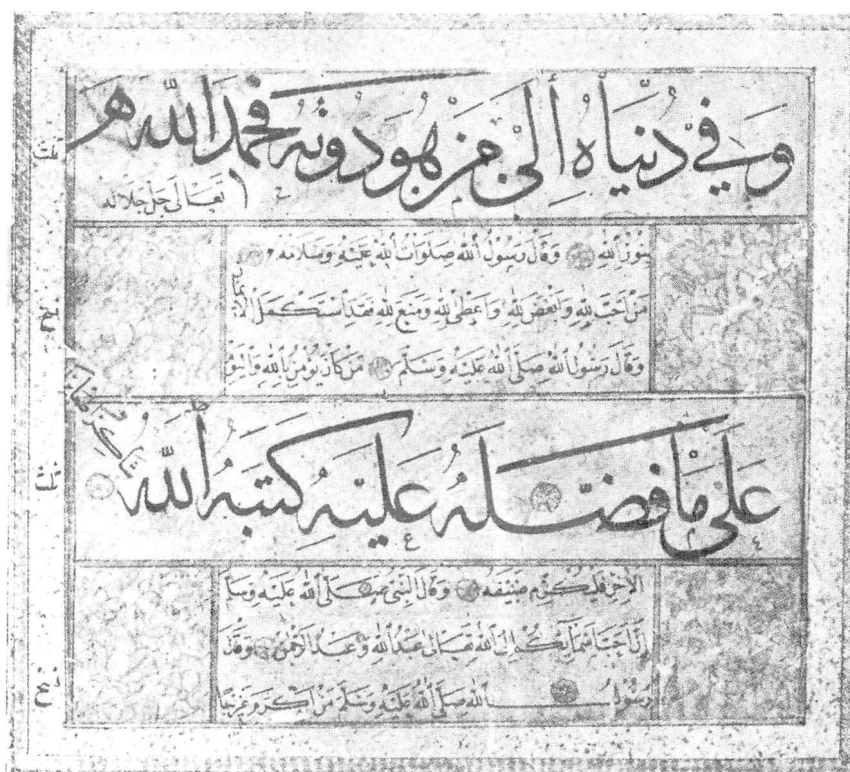 ثلث
وَفي دُنْيَاهُ أِلَىٰ مَنْ هُوَ دُونَهُ فَحَمِدَ اللهَ
تَعَالَى جَلَّ جَلَالُهُ
نسخ
بِنُورِ اللهِ وَقَالَ رَسُولُ اللهِ صَلَوَاتُ اللهِ عَلَيْهِ وَسَلَامُهُ
مَنْ اَحَبَّ لِلهِ وَاَبْغَضَ لِلهِ وَاَعْطٰى لِلهِ وَمَنَعَ لِلهِ فَقَدِ اسْتَكْمَلَ الْاِيمَانَ
وَقَالَ رَسُولُ اللهِ صَلَّى اللهُ عَلَيْهِ وَسَلَّمَ مَنْ كَانَ يُؤْمِنُ بِاللهِ وَالْيَوْ
ثلث
عَلَى مَا فَضَّلَهُ عَلَيْهِ كَتَبَهُ اللهُ
نسخ
الْاٰخِرِ فَلْيُكْرِمْ ضَيْفَهُ وَقَالَ النَّبِيُّ صَلَّى اللهُ عَلَيْهِ وَسَلَّمَ
اِنَّ اَحَبَّ اَسْمَائِكُمْ اِلَى اللهِ تَعَالَى عَبْدُ اللهِ وَعَبْدُ الرَّحْمٰنِ وَقَالَ
رَسُولُ اللهِ صَلَّى اللهُ عَلَيْهِ وَسَلَّمَ مَنْ اَكْرَمَ غَرِيبًا